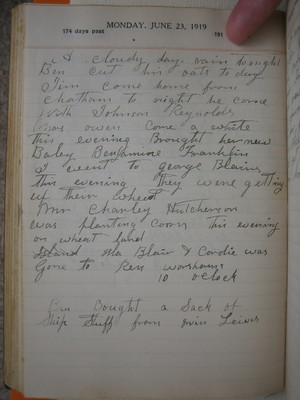 MONDAY, JUNE 23, 1919
174 days past 191
A cloudy day rain to night
Ben cut his oats to day
Jim come home from
Chatham to night he come
With Johnson Reynolds
Mrs owen come a while
this evening Brought her new
Baby Benjamine Franklin
I went to george Blairs
this evening They were getting
up their wheat
Mr Charley Hutcherson
was planting corn this evening
on wheat land
Ma Blair & Cordie was
Gone to Ben
10 o clock
Ben bought a Sack of
Ship Stuff from Lewis